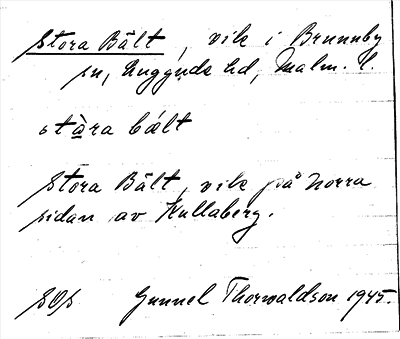 Stora Bält, vik i Brunnby
sn, Luggude hd, Malm. l.
stàra bált
Stora Bält, vik på norra
sidan av Kullaberg.
SOS Gunnel Thorwaldson 1945.